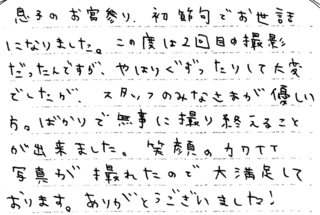 息子のお宮参り、初節句でお世話
になりました。この度は2回目の撮影
だったんですが、やはりぐずったりして大変
でしたが、スタッフのみなさまが優しい
方。ばかりで無事に撮り終えること
が出来ました。笑顔のカワイイ
写真が撮れたので大満足して
おります。ありがとうございました!